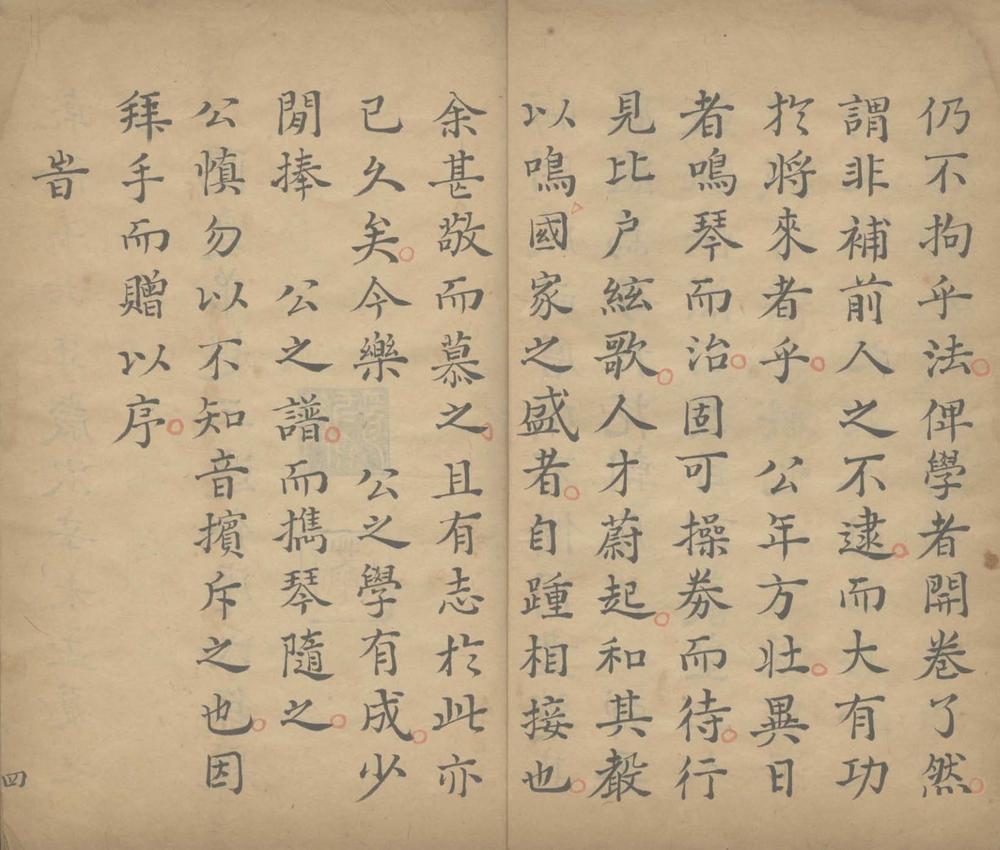 仍不拘乎法。俾學者開卷了然。
謂非補前人之不逮。而大有功
扵將來者乎。公年方壯。異日
者鳴琴而治。固可操券而待。行
見比户絃歌。人才蔚起。和其聲
以鳴國家之盛者。自踵相接也。
余甚敬而慕之。且有志扵此亦
已久矣。今樂公之學有成。少
閒捧公之譜。而携琴隨之。
公慎勿以不知音擯斥之也。因
拜手而贈以序。
旹
四